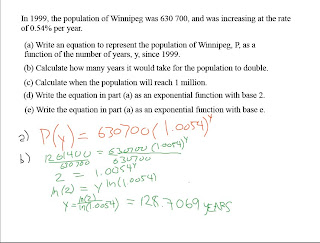 In 1999, the population of Winnipeg was 630 700, and was increasing at the rate
of 0.54% per year.
(a) Write an equation to represent the population of Winnipeg, P, as a
function of the number of years, y, since 1999.
(b) Calculate how many years it would take for the population to double.
(c) Calculate when the population will reach 1 million.
(d) Write the equation in part (a) as an exponential function with base 2.
(e) Write the equation in part (a) as an exponential function with base e.
a) P(y) = 630700(1.0054)^y
b) 1261400/630700 = 630700(1.0054)^y/630700
2 = 1.0054^y
ln(2) = y ln(1.0054)
y = ln(2)/ln(1.0054) = 128.7069 YEARS